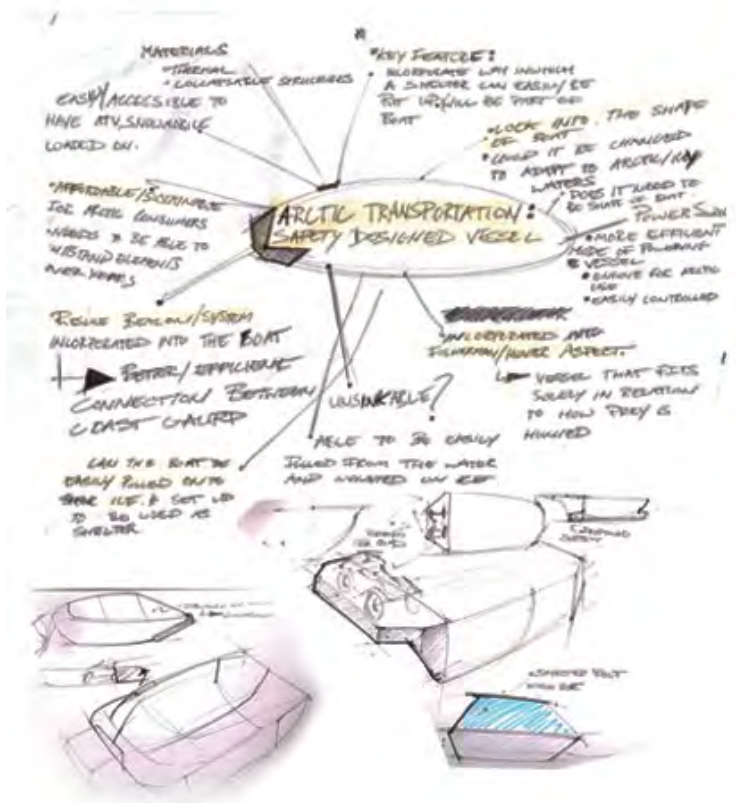 MATERIALS
• THERMAL
• COLLAPSABLE STRUCTURES
EASILY/ACCESSIBLE TO
HAVE ATV, SNOWMOBILE
LOADED ON.
• KEY FEATURE:
INCORPORATE WAY IN WHICH
A SHELTER CAN EASILY BE
PUT UP/WILL BE PART OF
BOAT
• LOOK INTO THE SHAPE
OF BOAT
• COULD IT BE CHANGED
TO ADAPT TO ARCTIC/ICY
WATERS
• DOES IT NEED TO
BE SHAPE OF BOAT
• AFFORDABLE/SUSTAINABLE
FOR ARCTIC CONSUMERS
NEEDS & BE ABLE TO
WITSTAND ELEMENTS
OVER YEARS
ARCTIC TRANSPORTATION:
SAFETY DESIGNED VESSEL
POWER
• MORE EFFICIENT
MODE OF POWERING
VESSEL
• ENGINE FOR ARCTIC
USE
• EASILY CONTROLLED
BEACON/SYSTEM
INCORPORATED INTO THE BOAT
BETTER/EFFICIENT
CONNECTION BETWEEN
COAST GAURD
INCORPORATED INTO
FISHERMAN/HUNTER ASPECT.
VESSEL THAT FITS
SOLELY IN RELATION
TO HOW PREY IS
HUNTED
UNSINKABLE?
ABLE TO BE EASILY
PULLED FROM THE WATER
AND ISOLATED ON ICE
CAN THE BOAT BE
EASILY PULLED ONTO
ICE & SET UP
TO BE USED AS
SHELTER